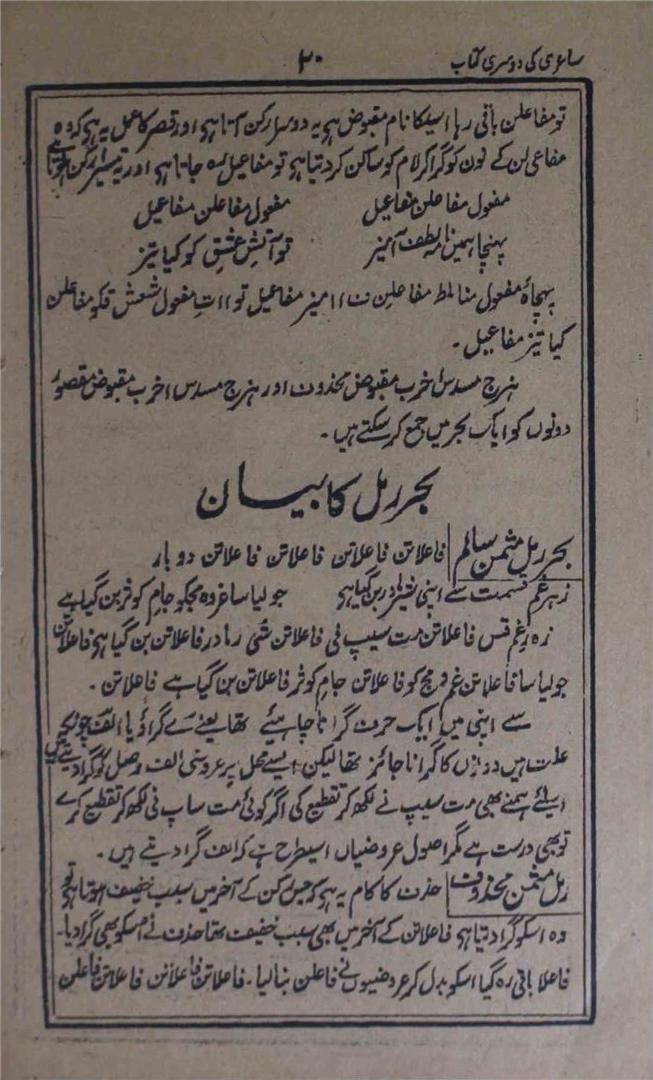 شاعری کی دوسری کتاب ۲۰
تو مفاعلن باقی رہا اسیکا نام مقبوض ہے یہ دوسرا رکن آتا ہے اور قصر کا عمل یہ ہے کہ وہ
مفاعی لن کے نون کو گرا کر لام کو ساکن کر دیتا ہے تو مفاعیل رہ جاتا ہے اور یہ تیسرا رکن
مفعول مفاعلن مفاعیل مفعول مفاعلن مفاعیل
پہنچا ہمیں نامہ لطف آمیز تو آتش عشق کو کیا تیز
پہچاۂ مفعول منا لط مفاعلن ف اا میز مفاعیل تو اات مفعول شعش قکو مفاعلن
کیا تیز مفاعیل۔
ہزج مسدس اخرب مقبوض محذوف اور ہزج مسدس اخرب مقبوض مقصور
دونوں کو ایک بحر میں جمع کر سکتے ہیں۔
بحر رمل کا بیان
بحر رمل مثمن سالم فاعلاتن فاعلاتن فاعلاتن فاعلاتن دو بار
زہر غم قسمت سے اپنی بن گیا ہے جو لیا ساغر وہ مجکو جام کوثر بن گیا ہے
زہ رغم قس فاعلاتن مت سیپ نی فاعلاتن فاعلاتن بن گیا ہے فاعلاتن
جو لیا سا فاعلاتن غر و مج کو فاعلاتن جام کوثر فاعلاتن بن گیا ہے فاعلاتن۔
سے اپنی میں ایک حرف گرانا چاہیئے تھا یعنے ے گرا دیا الف چونکہ
علت ہیں دونوں کا گرانا جائز تھا لیکن ایسے محل پر عروضی الف وصل کو گرا دیتے ہیں
اسلئے ہمنے بھی مت سیپ نے لکھ کر تقطیع کی اگر کوئی مت ساپ نی لکھ کر تقطیع کرے
تو بھی درست ہے مگر اصول عروضیاں اسیطرح ہے کہ الف گرا دیتے ہیں۔
رمل مثمن محذوف حذف کا کام یہ ہے کہ جس رکن کے آخر میں سبب خفیف ہوتا ہے تو
وہ اسکو گرا دیتا ہے فاعلاتن کے آخر میں بھی سبب خفیف تھا حذف نے اسکو بھی گرا دیا۔
فاعلا باقی رہ گیا اسکو بدل کر عروضیوں نے فاعلن بنا لیا۔ فاعلاتن فاعلاتن فاعلاتن فاعلن